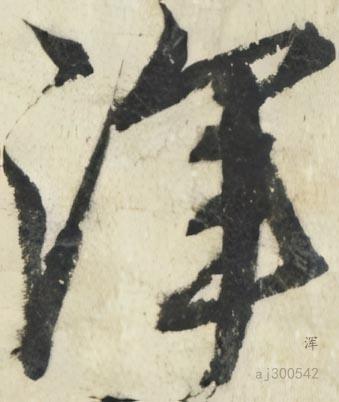 渾
浑
aj300542